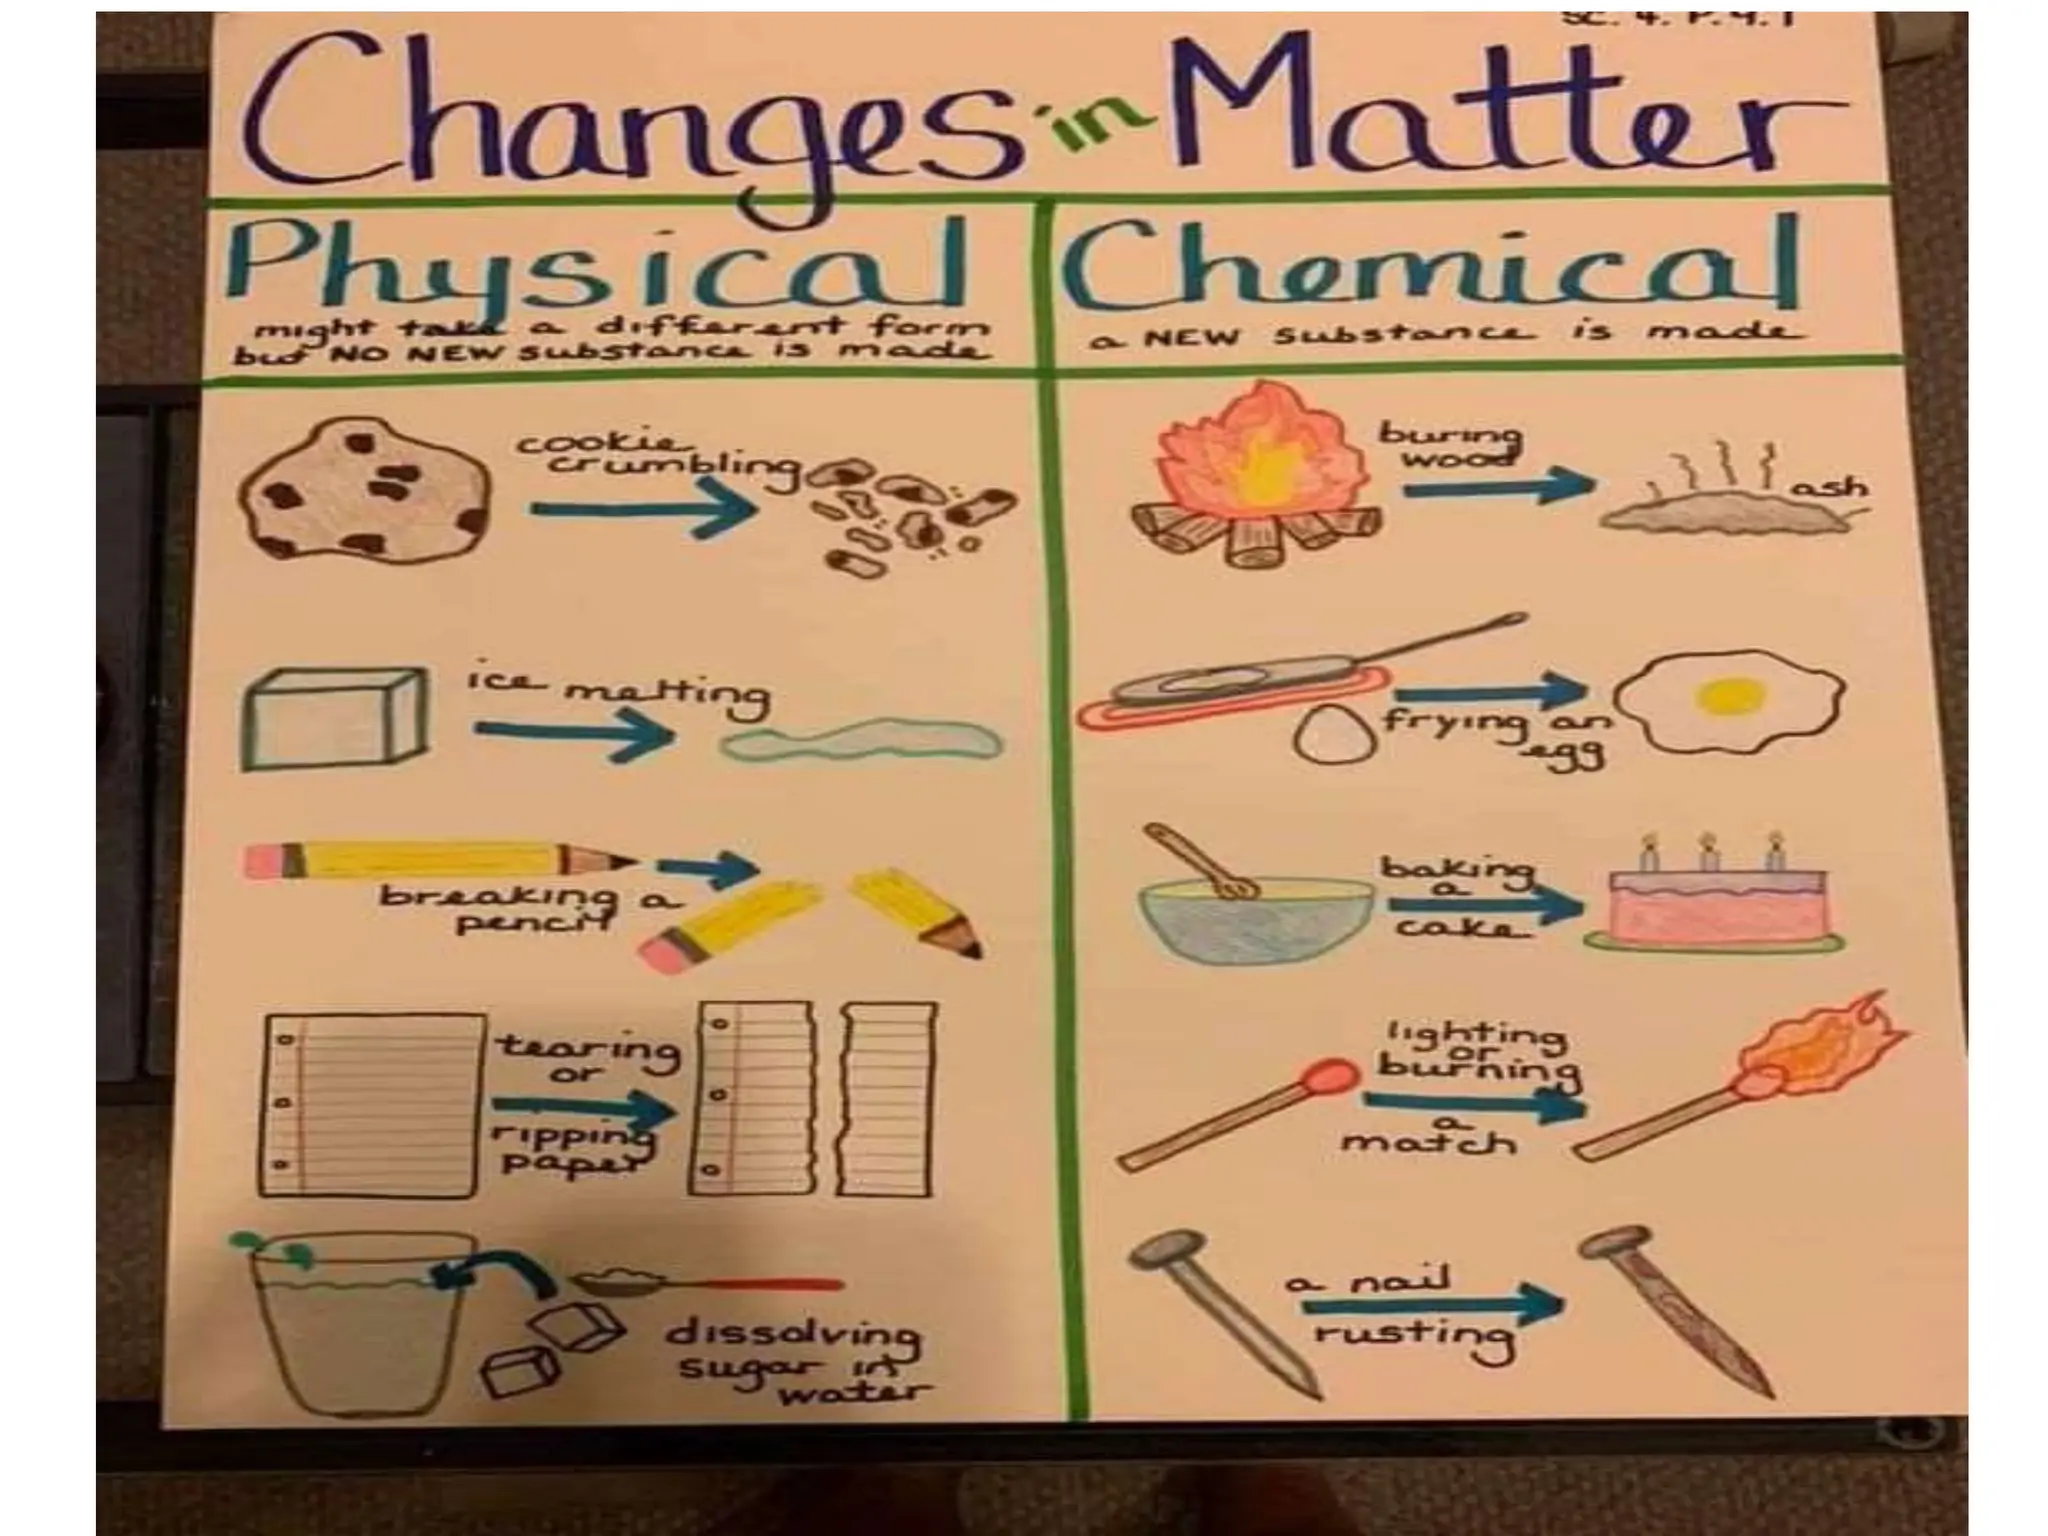 SC. 4. P. 9. 1
Changes in Matter
Physical
might take a different form
but NO NEW substance is made
cookie
crumbling
ice melting
breaking a
pencil
tearing
or
ripping
paper
dissolving
sugar in
water
Chemical
a NEW substance is made
buring
wood
ash
frying an
egg
baking
a
cake
lighting
or
burning
a
match
a nail
rusting